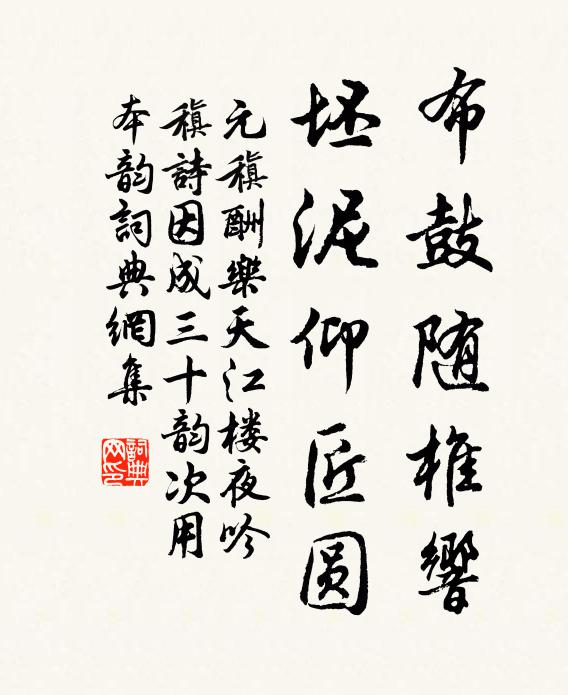 布鼓随椎響
坯泥仰匠圆
元稹酬樂天江楼夜吟
稹詩因成三十韵次用
本韵詞典網集
詞典
网印